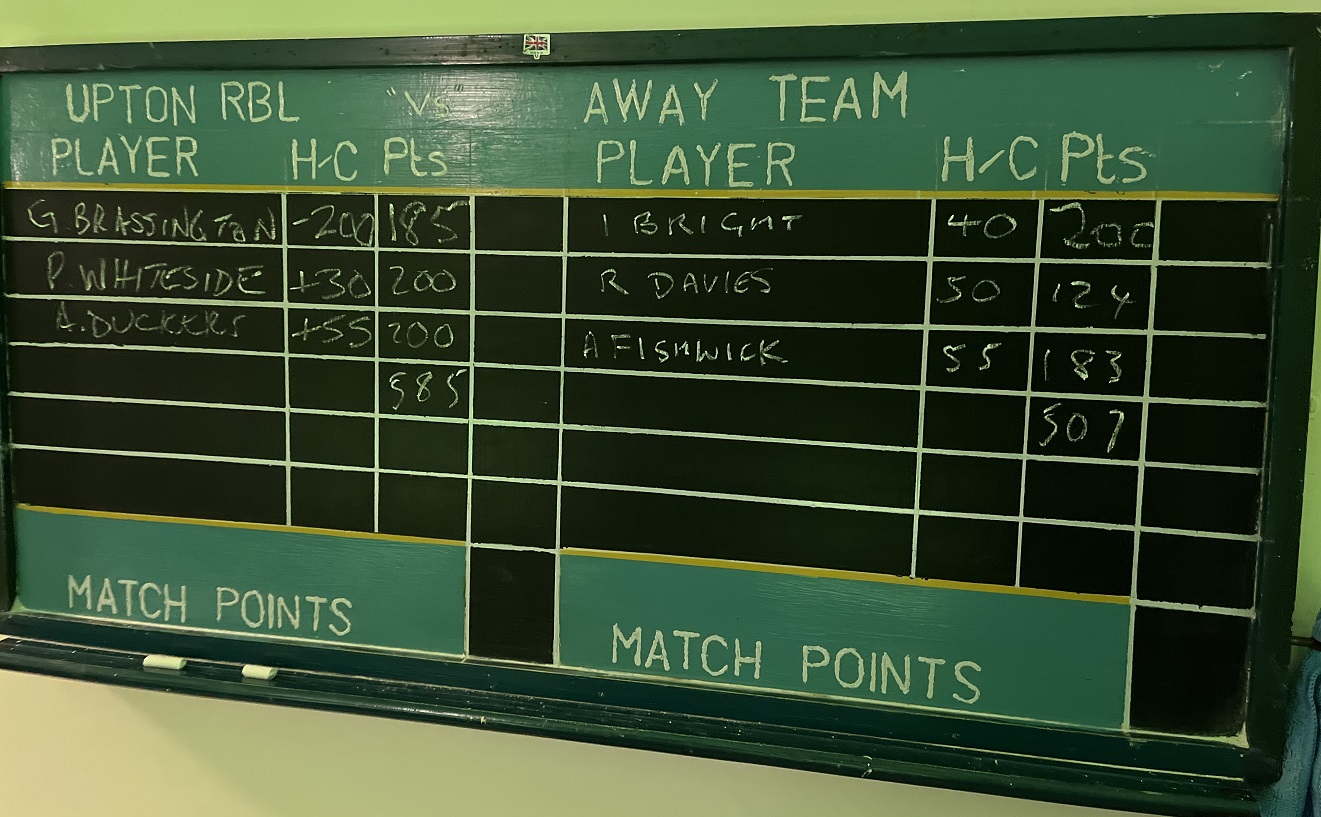 UPTON RBL "Vs" AWAY TEAM
PLAYER H-C Pts PLAYER H-C Pts
G. BRASSINGTON -200 185 I BRIGHT 40 200
P. WHITESIDE +30 200 R DAVIES 50 124
A. DUCKERS +55 200 A FISHWICK 55 183
585 507
MATCH POINTS MATCH POINTS